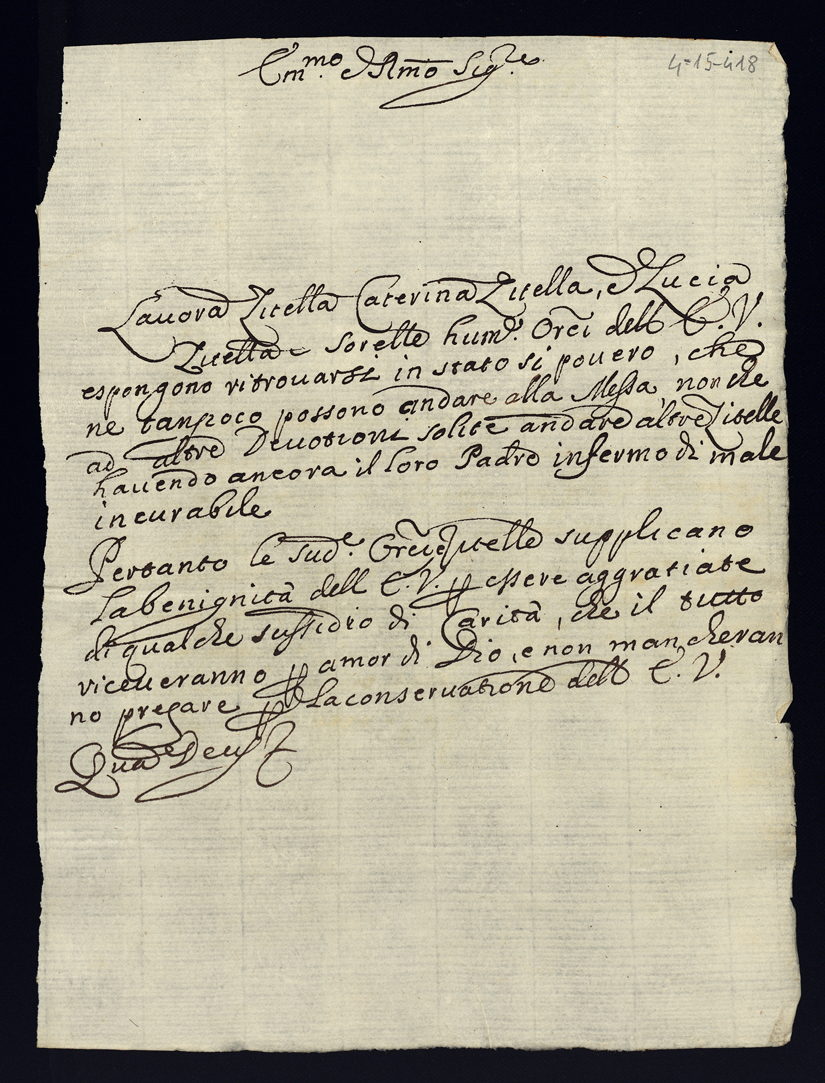 Em.mo e Rmo Sig.re
4-15-418
Lauora Zitella Caterina Zitella, e Lucia
Zitella sorelle hum.e Orci dell E. V.
espongono ritrouarsi in stato si pouero, che
ne tanpoco possono andare alla Messa, nonche
ad altre Deuotioni solite andare altre Zitelle
hauendo ancora il loro Padre infermo di male
incurabile
Pertanto le sud.e Orci e Zitelle supplicano
la benignità dell E. V. p essere aggratiate
di qualche sussidio di Carità, che il tutto
riceueranno p amor di Dio, e non mancheran
no pregare p la conseruatione dell E. V.
Qua Deus &